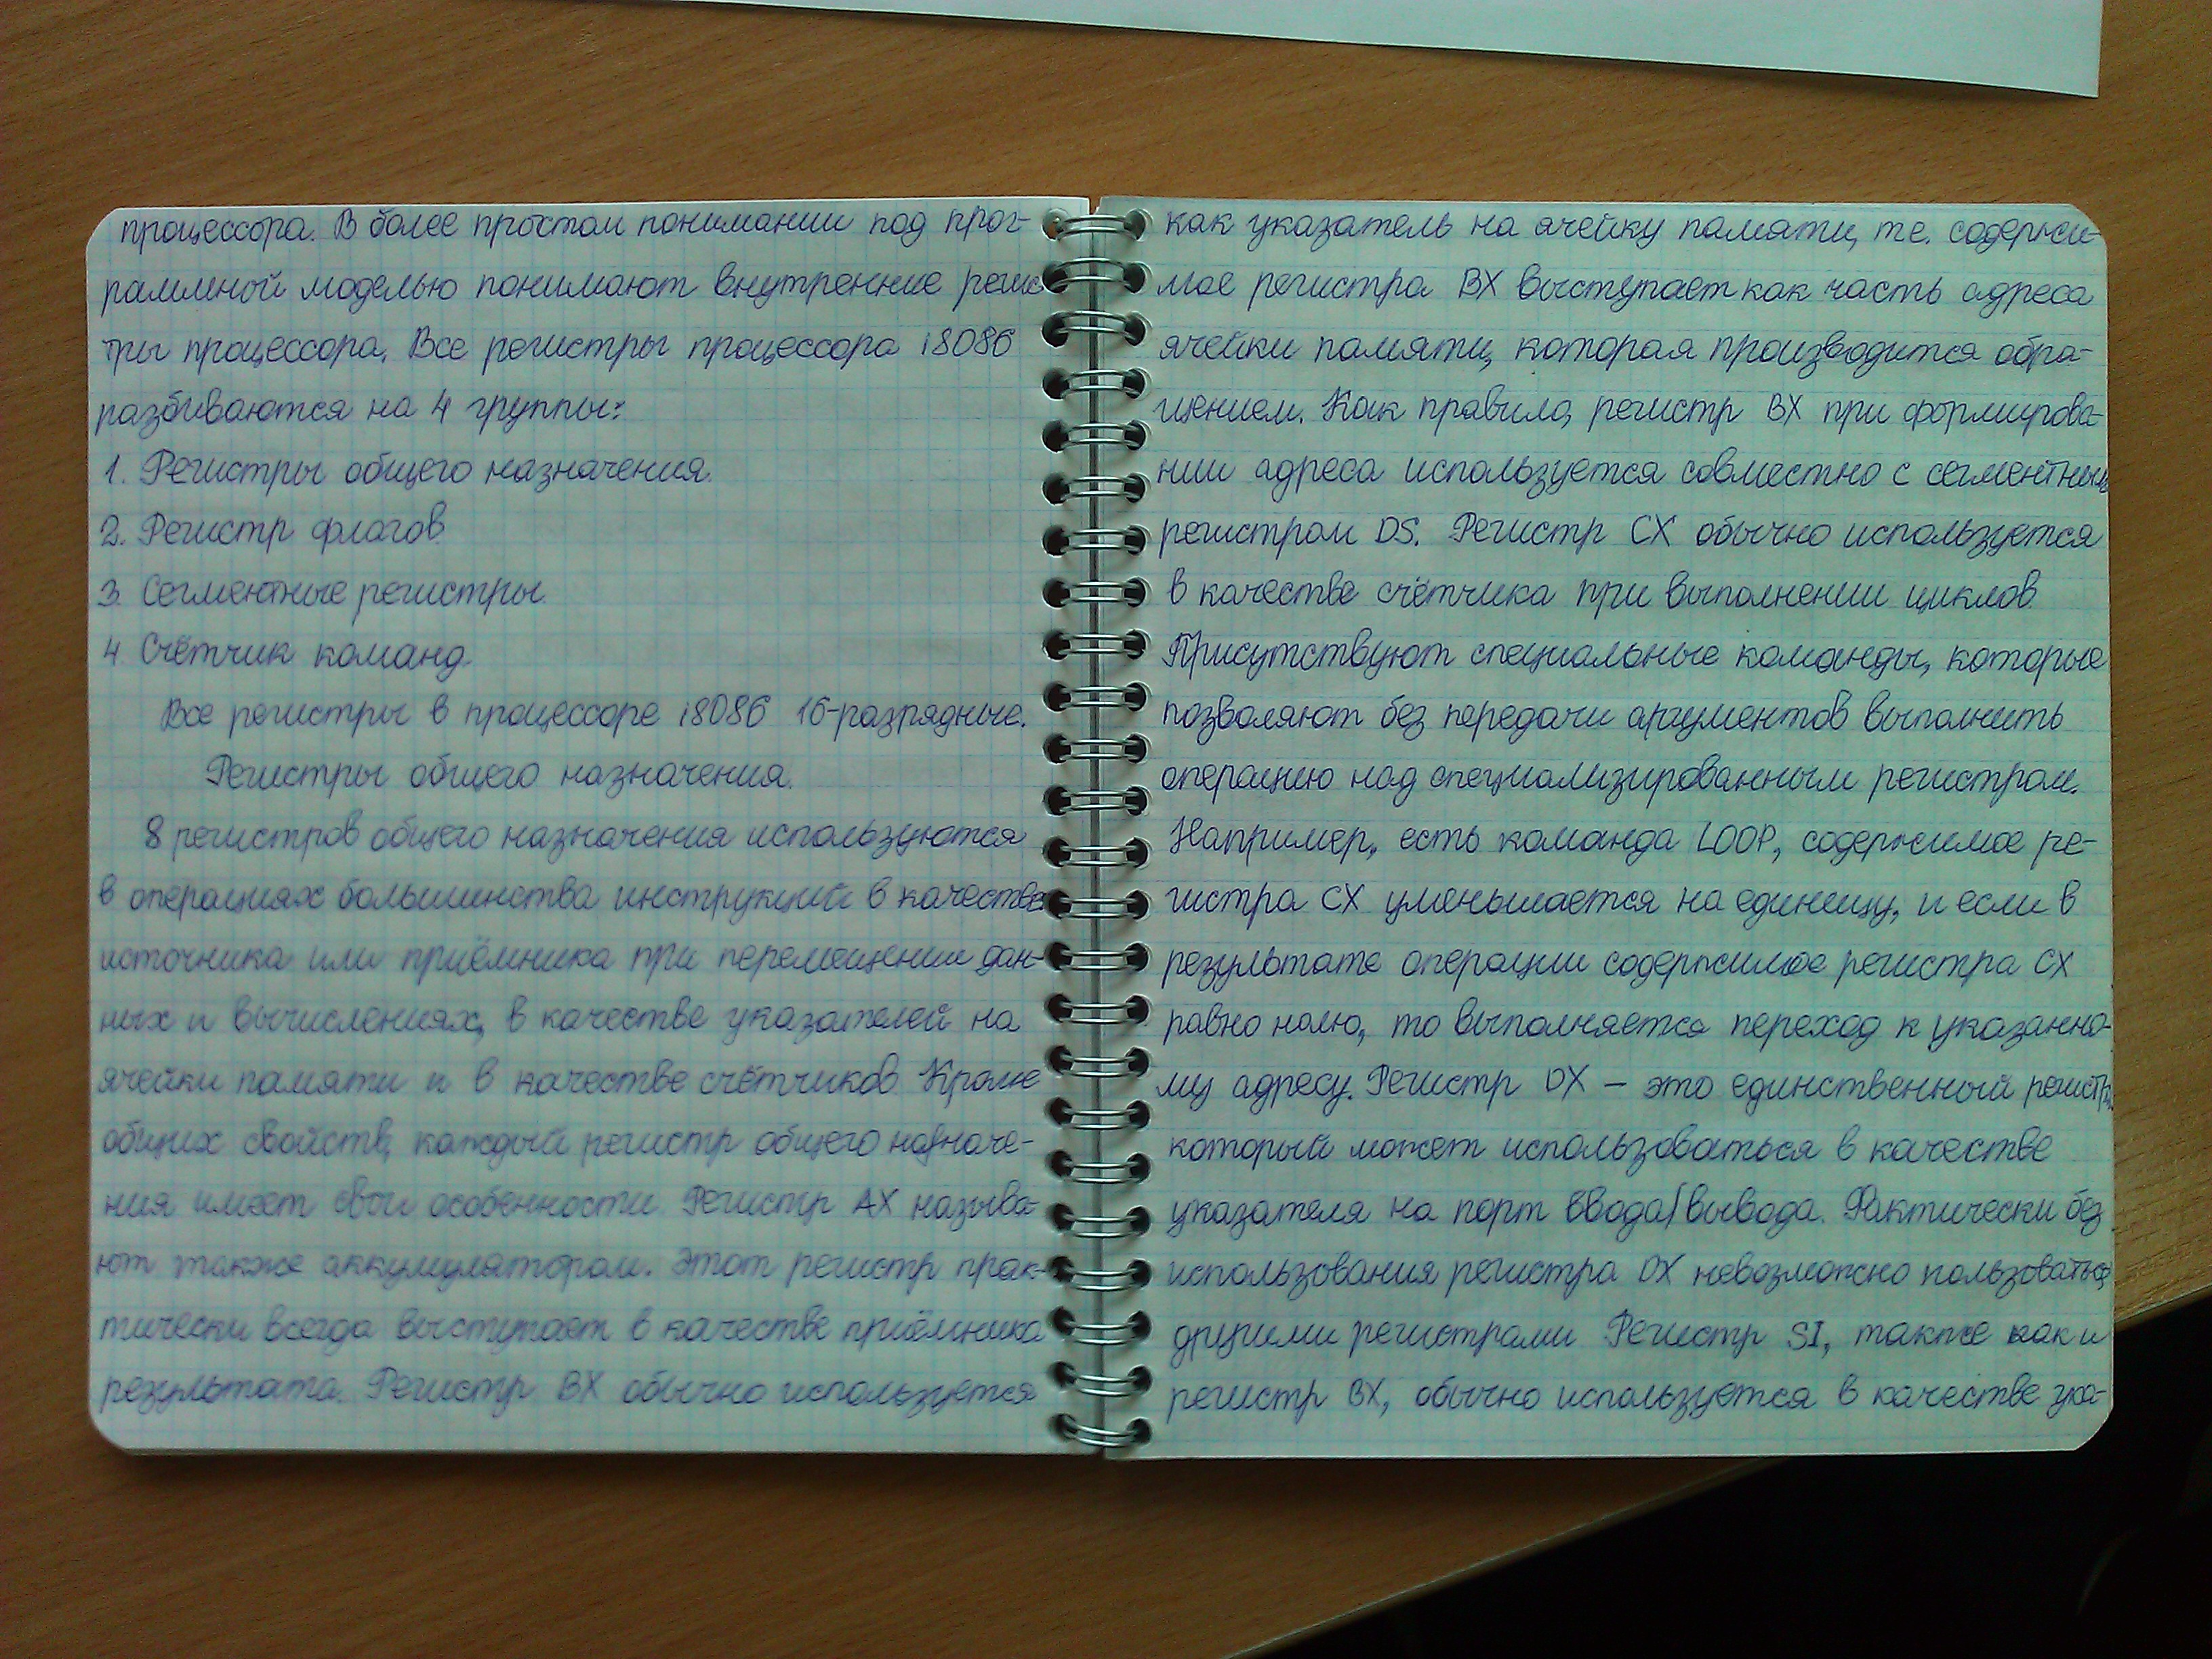 процессора. В более простом понимании под прог-
раммной моделью понимают внутренние регис
тры процессора. Все регистры процессора i8086
разбиваются на 4 группы:
1. Регистры общего назначения.
2. Регистр флагов.
3. Сегментные регистры.
4. Счётчик команд.
Все регистры в процессоре i8086 16-разрядные.
Регистры общего назначения.
8 регистров общего назначения используются
в операциях большинства инструкций в качестве
источника или приёмника при перемещении дан-
ных и вычислениях, в качестве указателей на
ячейки памяти и в качестве счётчиков. Кроме
общих свойств, каждый регистр общего назначе-
ния имеет свои особенности. Регистр AX называ-
ют также аккумулятором. Этот регистр прак-
тически всегда выступает в качестве приёмника
результата. Регистр BX обычно используется
как указатель на ячейку памяти, т.е. содержи-
мое регистра BX выступает как часть адреса
ячейки памяти, которая производится обра-
щением. Как правило, регистр BX при формирова-
нии адреса используется совместно с сегментным
регистром DS. Регистр CX обычно используется
в качестве счётчика при выполнении циклов.
Присутствуют специальные команды, которые
позволяют без передачи аргументов выполнить
операцию над специализированным регистром.
Например, есть команда LOOP, содержимое ре-
гистра CX уменьшается на единицу, и если в
результате операции содержимое регистра CX
равно нолю, то выполняется переход к указанно-
му адресу. Регистр DX – это единственный регистр,
который может использоваться в качестве
указателя на порт ввода/вывода. Фактически без
использования регистра DX невозможно пользоваться
другими регистрами. Регистр SI, также как и
регистр BX, обычно используется в качестве ука-